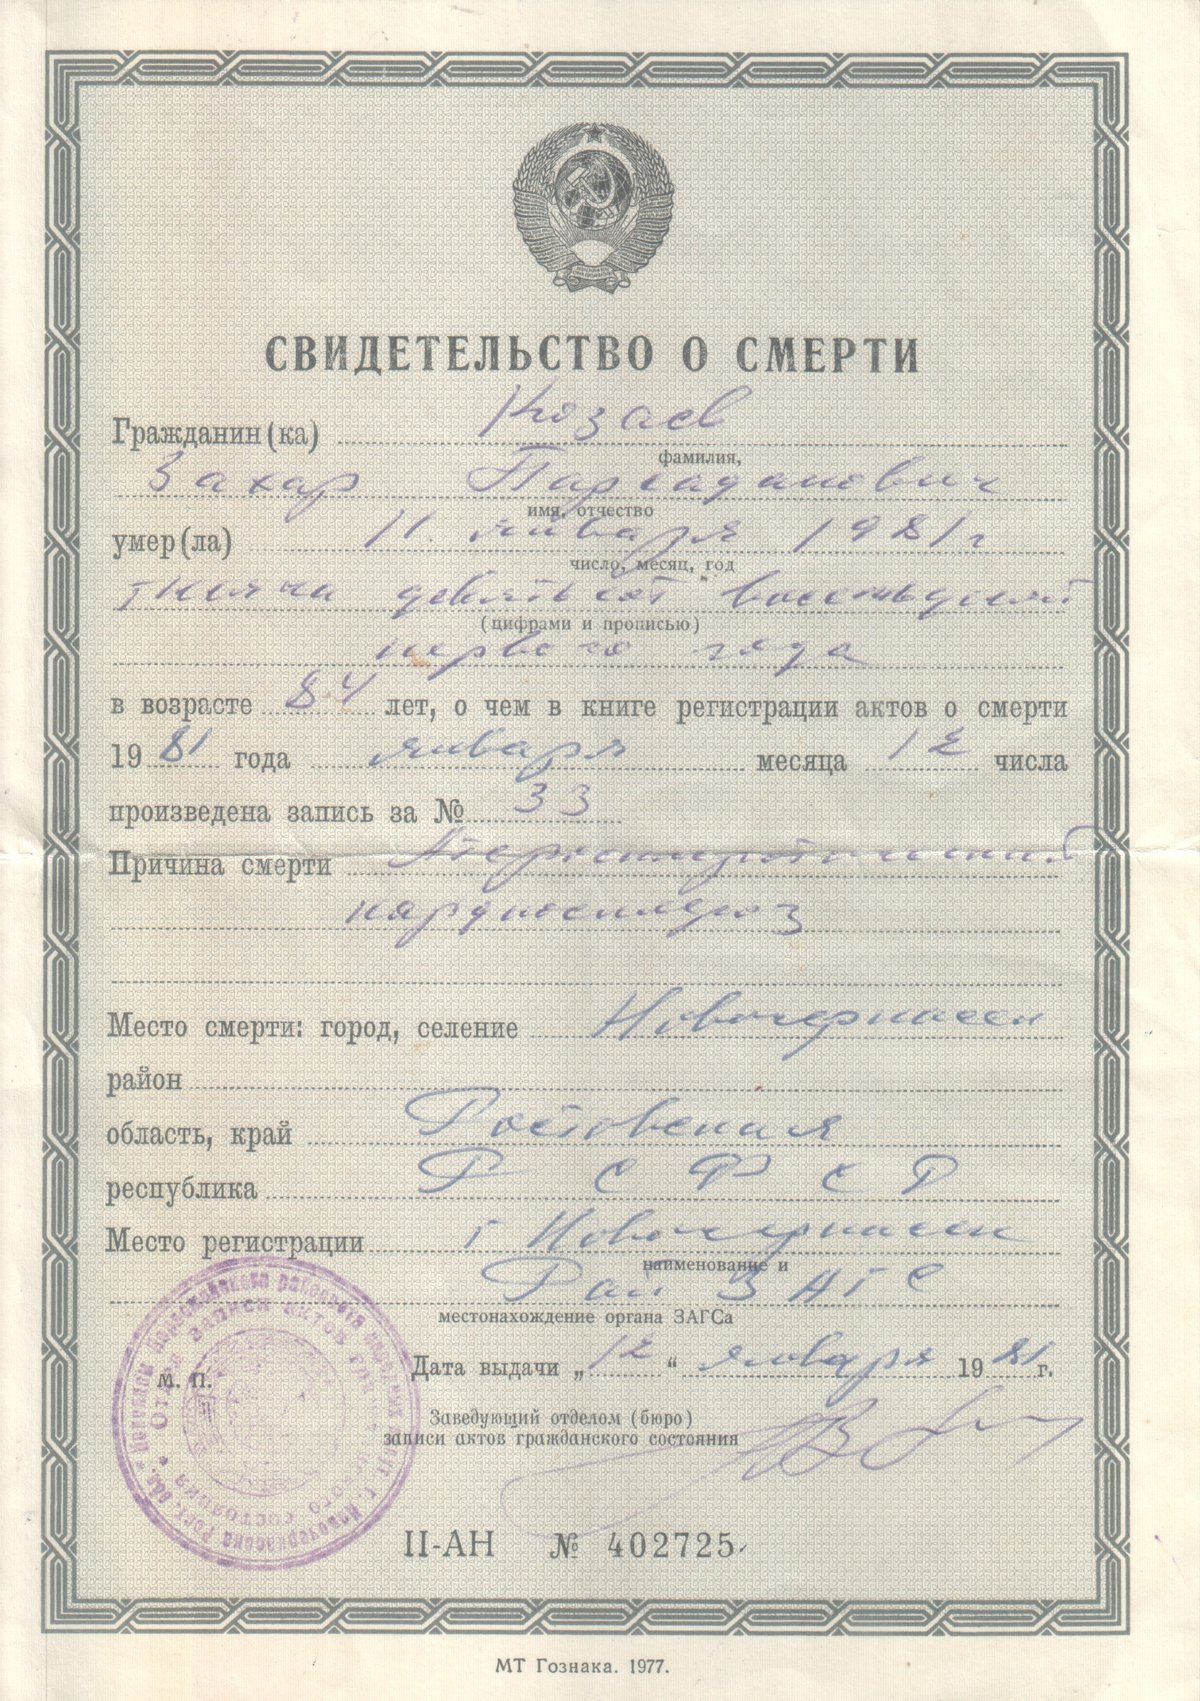 СВИДЕТЕЛЬСТВО О СМЕРТИ
Гражданин(ка) Козаев
фамилия,
Захар Парсаданович
имя, отчество
умер(ла) 11. января 1981 г
число, месяц, год
тысяча девятьсот восемьдесят
(цифрами и прописью)
первого года
в возрасте 84 лет, о чем в книге регистрации актов о смерти
1981 года января месяца 12 числа
произведена запись за № 33
Причина смерти Атеросклеротический
кардиосклероз
Место смерти: город, селение Новочеркасск
район
область, край Ростовская
республика РСФСР
Место регистрации г Новочеркасск
наименование и
Рай ЗАГС
местонахождение органа ЗАГСа
Дата выдачи „12“ января 1981 г.
М. П.
Заведующий отделом (бюро)
записи актов гражданского состояния
II-АН № 402725
МТ Гознака. 1977.